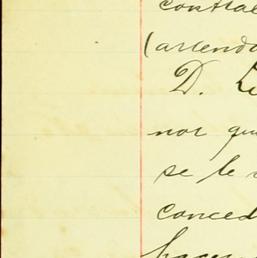 contrae
(arrenda
D. Lu
nor que
se le
conced
hacer